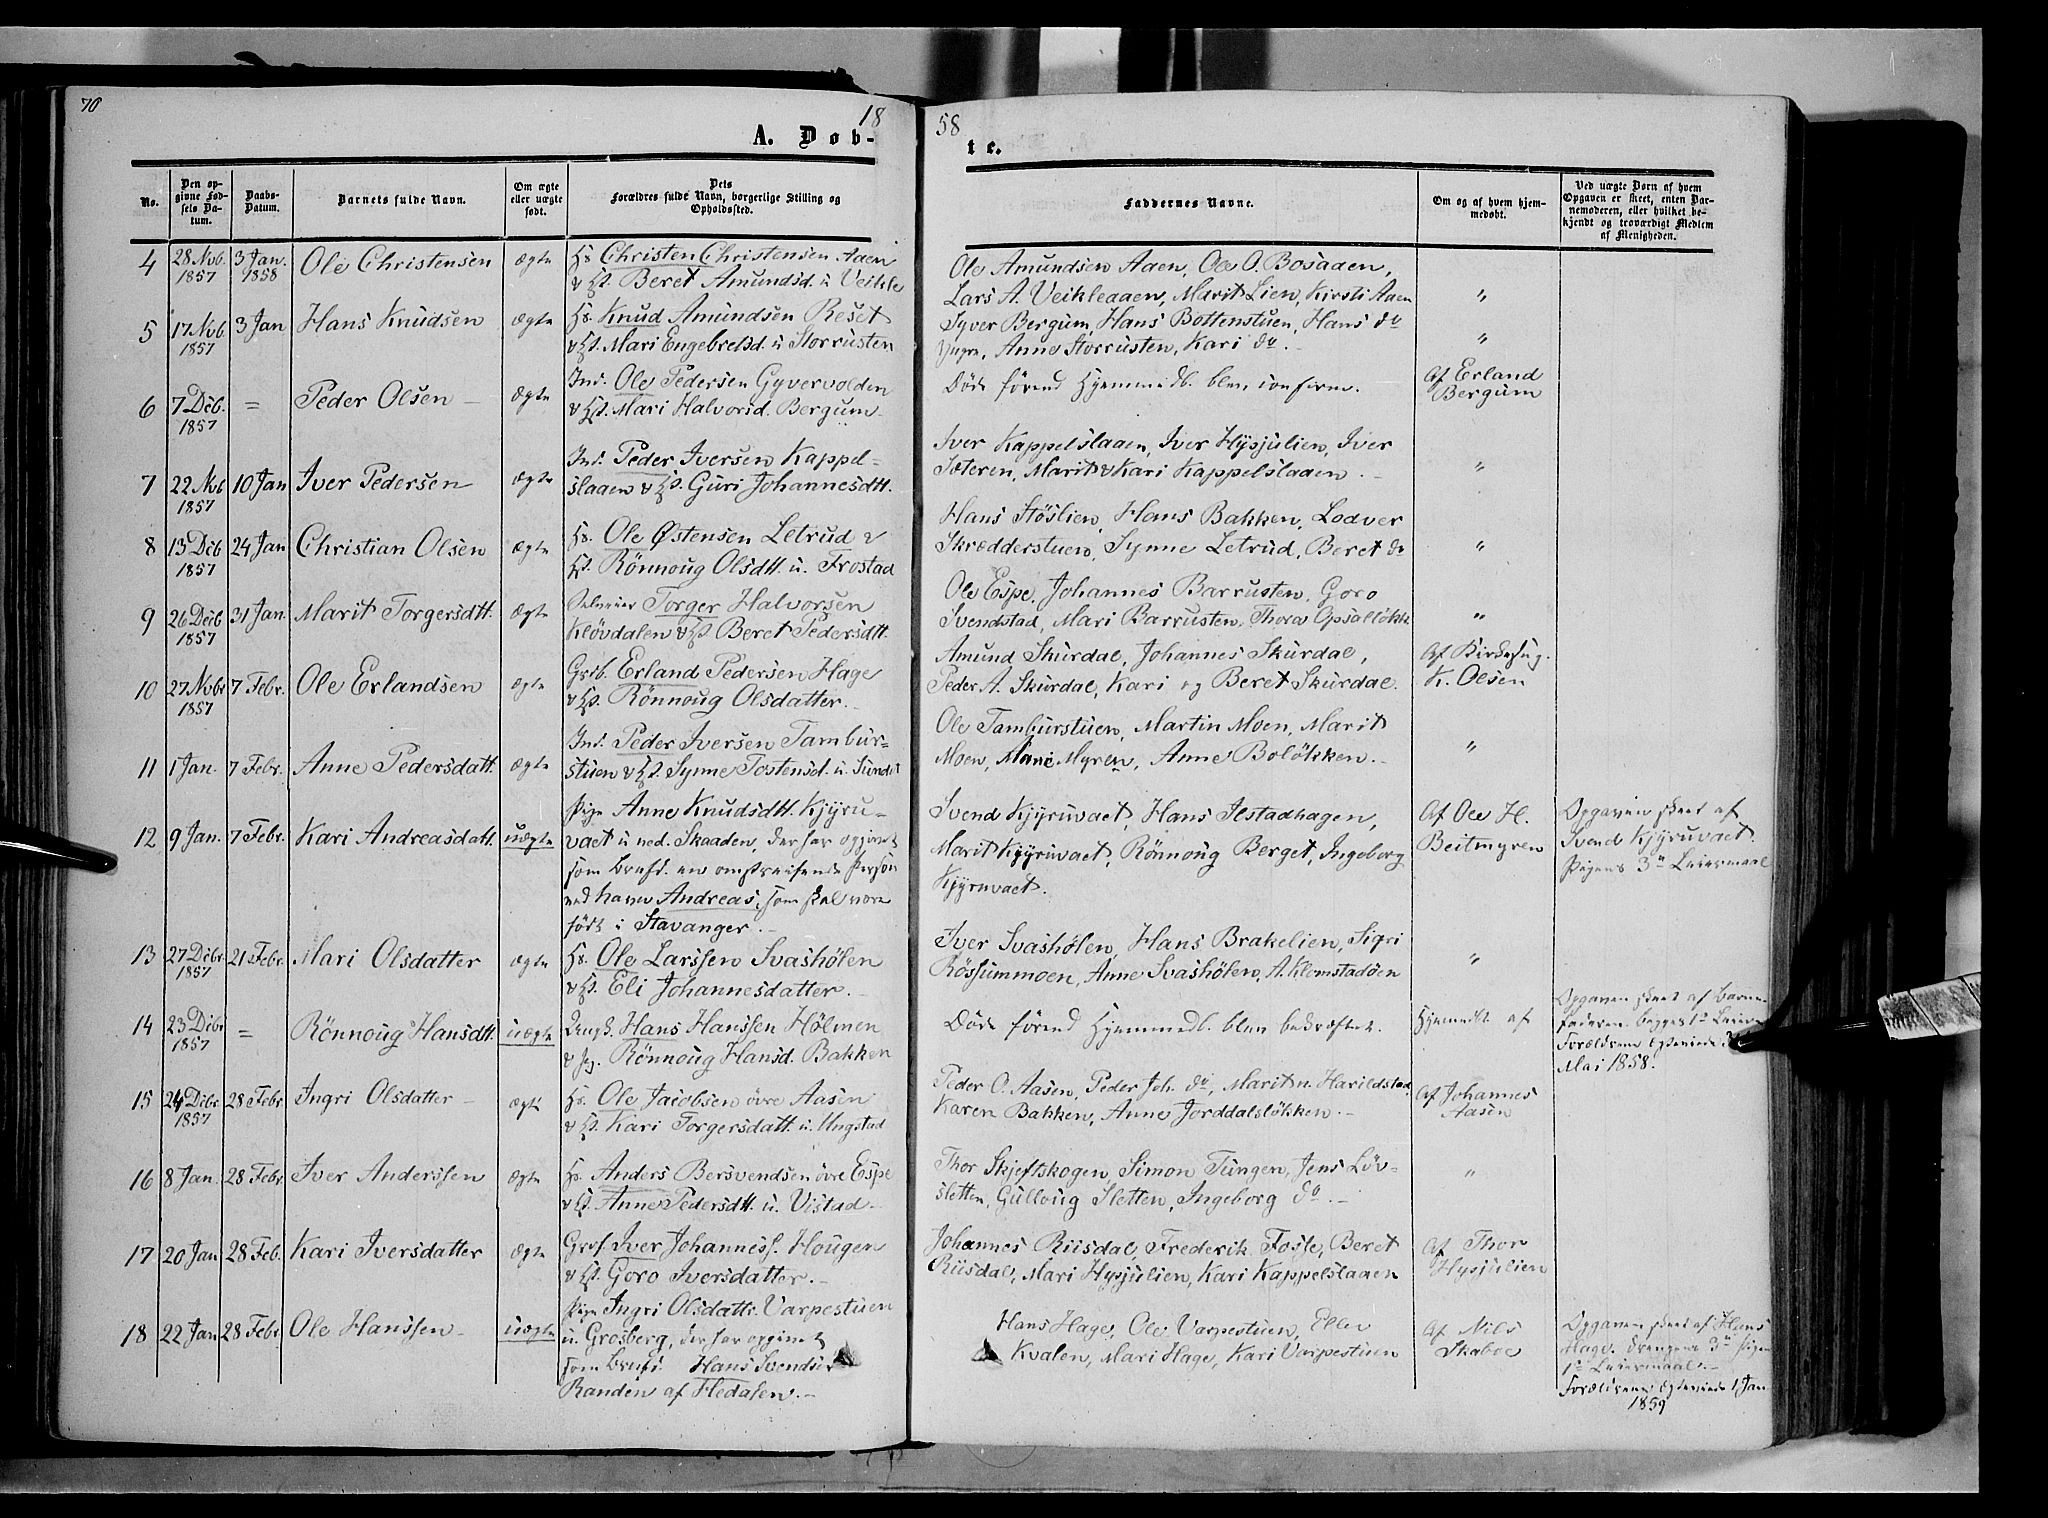 70
18
58
A. Døb-
te.
No.
Den opgivne Fødsels Datum.
Daabs-Datum.
Barnets fulde Navn.
Om ægte eller uægte født.
Dets Forældres fulde Navn, borgerlige Stilling og Opholdssted.
Faddernes Navne.
Om og af hvem hjemmedøbt.
Ved uægte Børn af hvem Opgaven er skeet, enten Barnemoderen, eller hvilket bekjendt og troværdigt Medlem af Menigheden.
4 28 Nvb. 1857 3 Jan. 1858 Ole Christensen ægte
Christen Christensen Aaen
Beret Amundsd. u Veikle
Ole Amundsen Aaen, Ole O. Bosaaen,
Lars A. Veikleaaen, Marit Lien, Kirsti Aaen
"
5 17 Nvb. 1857 3 Jan Hans Knudsen ægte
Knud Amundsen Reset
Mari Engebretsd. u Storrusten
Syver Bergum, Hans Bottenstuen, Hans do
Yngre, Anne Storrusten, Kari do. -
"
6 7 Dcb. 1857 = Peder Olsen - ægte
Ind. Ole Pedersen Gyvervolden
Mari Halvorsd. Bergum
Døde førend Hjemmedb. blev confirm.
Af Erland
Bergum
7 22 Nvb 1857 10 Jan Iver Pedersen ægte
Ind. Peder Iversen Kappel-
slaaen & Guri Johannesdtt.
Iver Kappelslaaen, Iver Hysjulien, Iver
Sæteren, Marit & Kari Kappelslaaen. -
"
8 13 Dcb 1857 24 Jan Christian Olsen ægte
Ole Østensen Letrud &
Rönnoug Olsdtt. u. Frostad
Hans Stöslien, Hans Bakken, Lodver
Skrædderstuen, Synne Letrud, Beret do
"
9 26 Dcb 1857 31 Jan. Marit Torgersdtt. ægte
Torger Halvorsen
Klövdalen & Beret Pedersdtt.
Ole Espe, Johannes Barrusten, Goro
Svendstad, Mari Barrusten, Thora Opsallökk
"
10 27 Nvbr 1857 7 Febr. Ole Erlandsen ægte
Grb. Erland Pedersen Hage
Rönnoug Olsdatter. -
Amund Skurdal, Johannes Skurdal,
Peder A. Skurdal, Kari og Beret Skurdal.
Af Kirkesng.
K. Olsen
11 1 Jan. 7 Febr. Anne Pedersdatt. ægte
Ind. Peder Iversen Tambur-
stuen & Synne Tostensd. u. Sundet
Ole Tamburstuen, Martin Moen, Marit
Moen, Mari Myren, Anne Bolökken. -
"
12 9 Jan. 7 Febr. Kari Andreasdatt. uægte
Pige Anne Knudsdtt. Kjyru-
vaet u ned. Skaaden, der har opgivet
som Brnfd. en omstreifende Person
ved havn Andreas, som skal være
født i Stavanger. -
Svend Kjyruvaet, Hans Ilstadhagen,
Marit Kjyruvaet, Rönnoug Berget, Ingeborg
Kjyruvaet.
Af Ole H.
Beitmyren
Opgaven skeet af
Svend Kjyruvaet.
Pigens 3die Leiermaal
13 27 Dcbr. 1857 21 Febr. Mari Olsdatter ægte
Ole Larssen Svashölen
Eli Johannesdatter. -
Iver Svashölen, Hans Brakelien, Sigri
Rössummoen, Anne Svashölen, A. Klomstadöen
"
14 23 Dcbr 1857 = Rönnoug Hansdtt. uægte
Ungk. Hans Hanssen Hölmen
& Pg. Rönnoug Hansd. Bakken
Døde førend Hjemmedb. blev bekræftet.
Hjemmedbt af
Opgaven skeet af Barne-
faderen. begges 1ste Leierm
Forældrene egteviede
Mai 1858.
15 24 Dcbr 1857 28 Febr Ingri Olsdatter - ægt
Ole Jacobsen övre Aasen
Kari Torgersdatt. u. Ungstad
Peder O. Aasen, Peder Joh. do, Marit n. Harildstad,
Karen Bakken, Anne Jorddalslökken. -
Af Johannes
Aasen
16 8 Jan. 28 Febr Iver Anderssen ægte
Anders Bersvendsen övre Espe
Anne Pedersdtt. u. Vistad -
Thor Skjeftskogen, Simon Tungen, Jens Löv-
sletten, Gulloug Sletten, Ingeborg do. -
"
17 20 Jan 28 Feb. Kari Iversdatter ægte
Grbs. Iver Johanness. Hougen
Goro Iversdatter. -
Johannes Riisdal, Frederik Fosse, Beret
Riisdal, Mari Hysjulien, Kari Kappelslaaen
Af Thor
Hysjulien
18 22 Jan 28 Febr Ole Hanssen - uægte
Pige Ingri Olsdattr. Varpestuen
u. Grosberg, der har opgivet
som Brnfd Hans Svendsen
Randen af Hedalen. -
Hans Hage, Ole Varpestuen, Ellev
Kvalen, Mari Hage, Kari Varpestuen
Af Nils
Skaboe
Opgaven skeet af Hans
Hage. Drengens 3die Pigen
1ste Leiermaal. -
Forældrene egteviede 1 Jan
1859